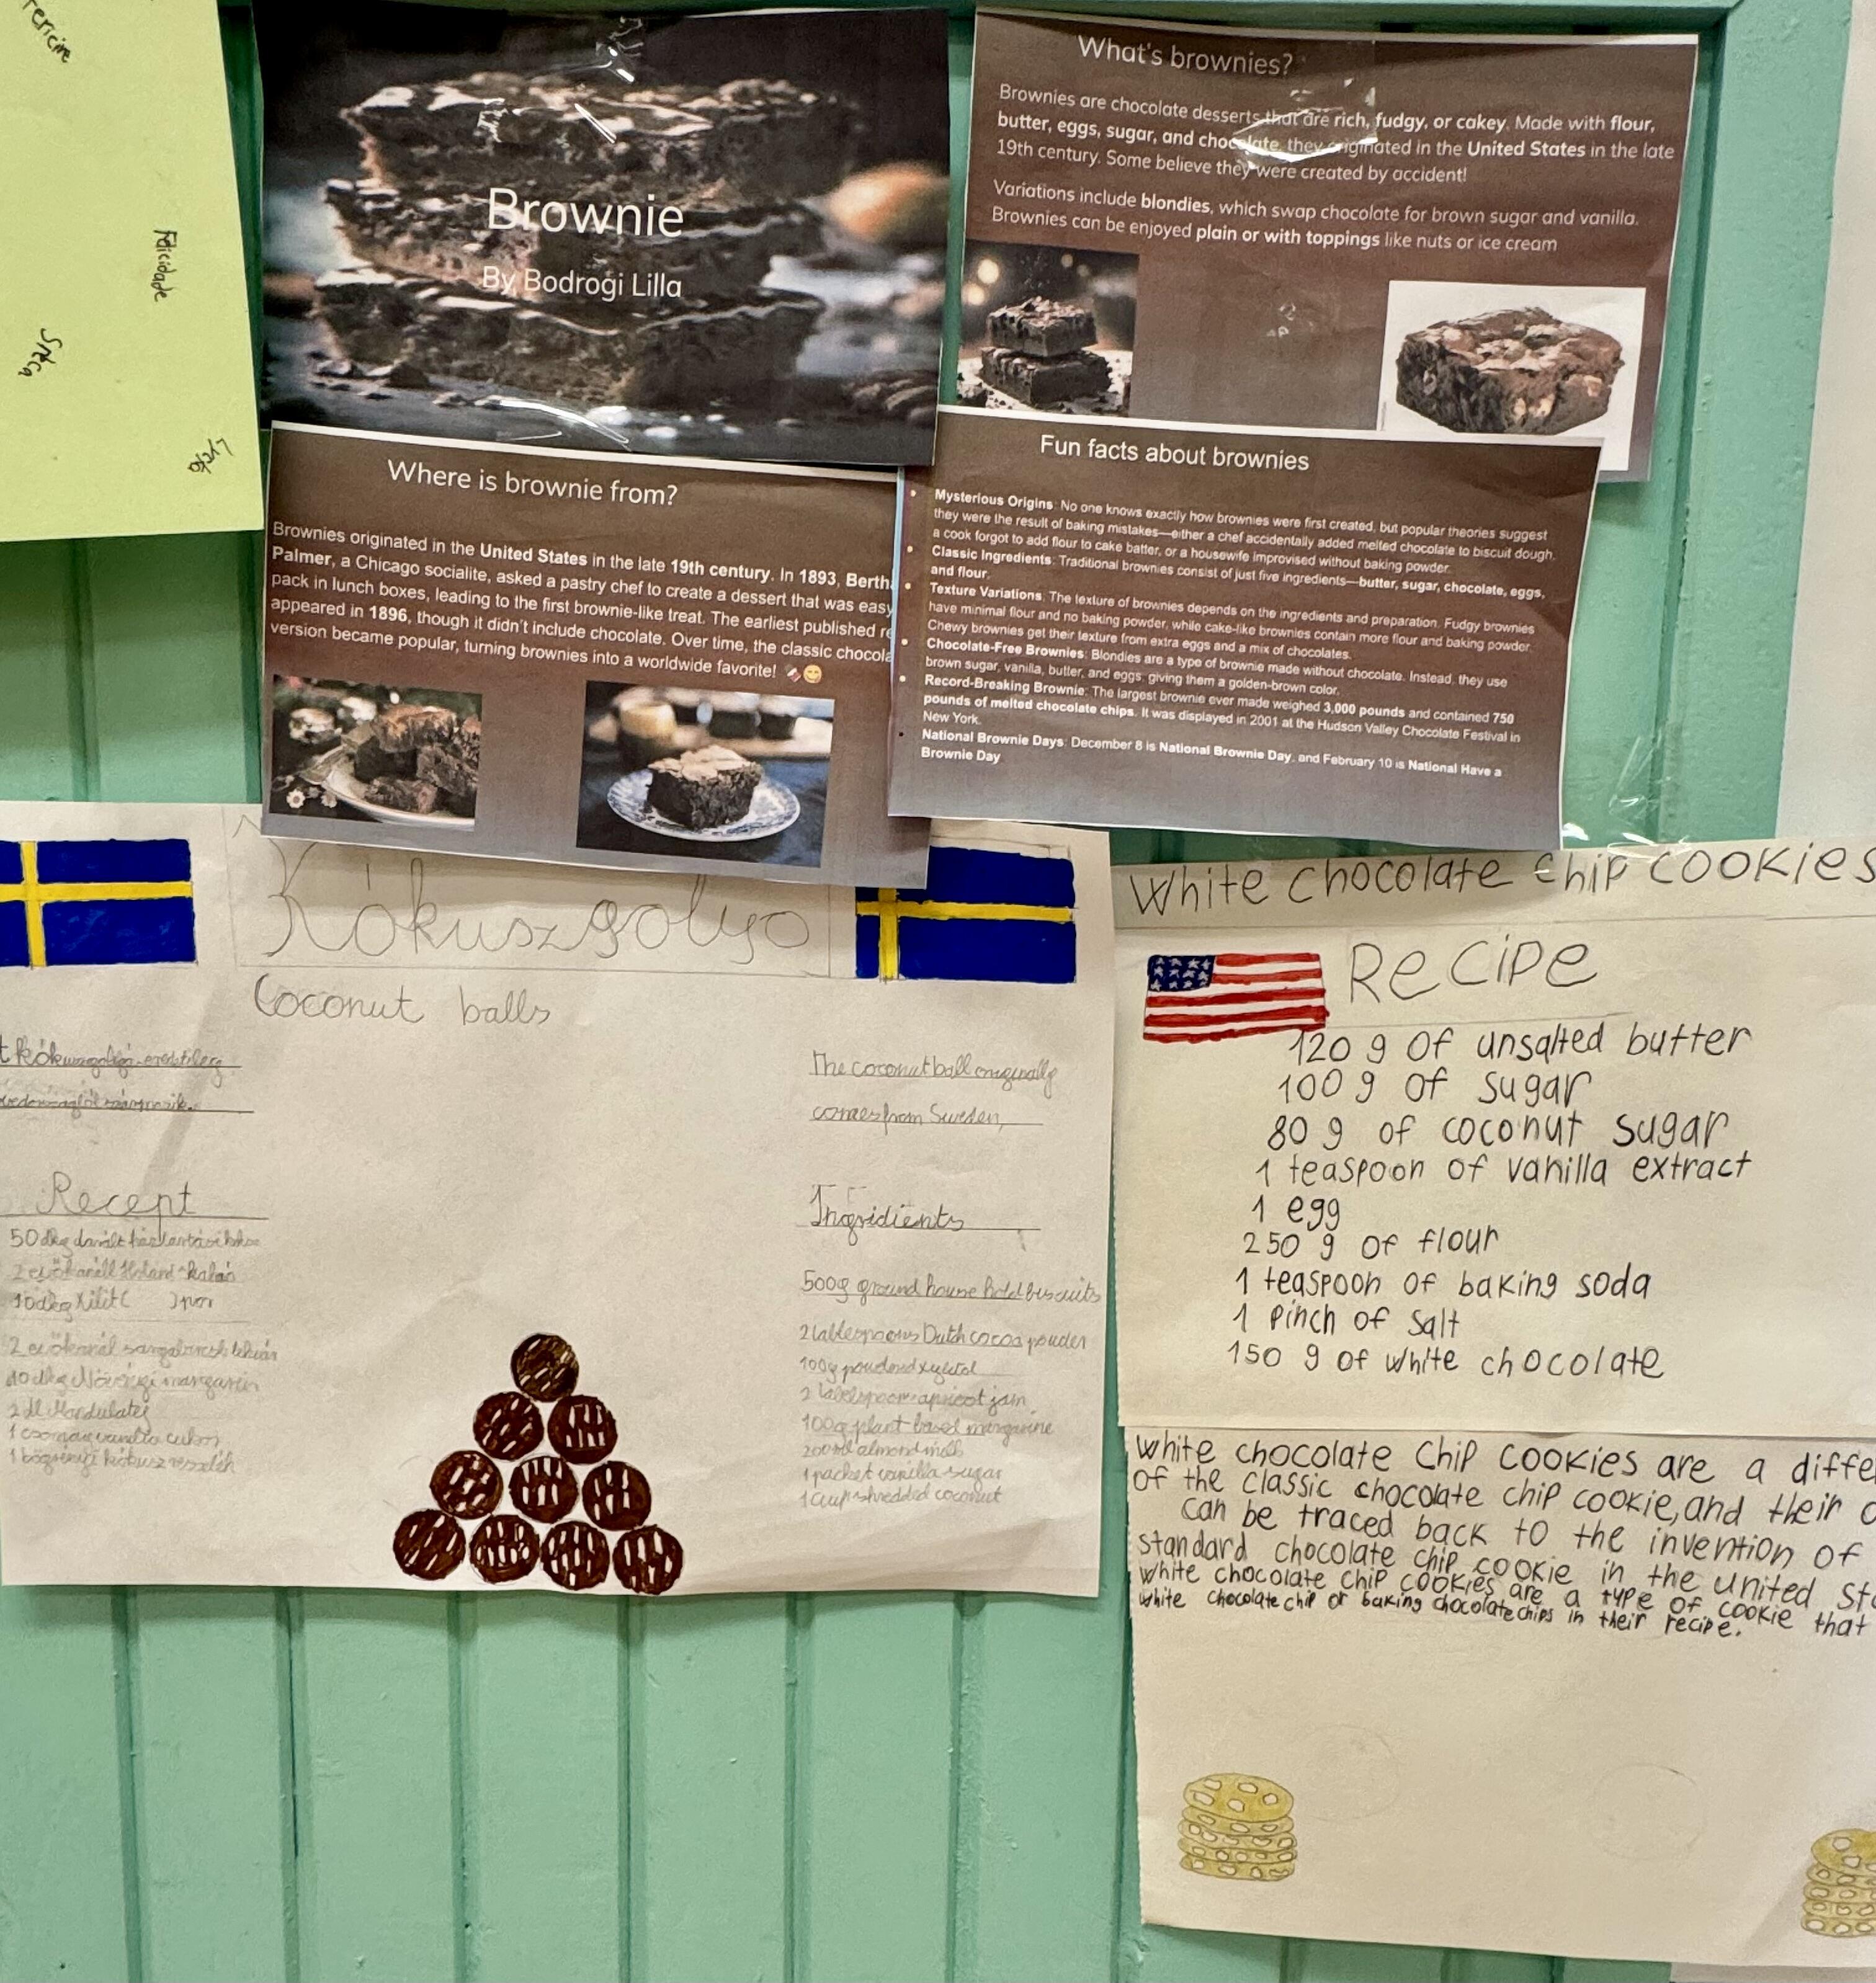 Felicidade
Brownie
By Bodrogi Lilla
What's brownies?
Brownies are chocolate desserts that are rich, fudgy, or cakey. Made with flour,
butter, eggs, sugar, and chocolate, they originated in the United States in the late
19th century. Some believe they were created by accident!
Variations include blondies, which swap chocolate for brown sugar and vanilla.
Brownies can be enjoyed plain or with toppings like nuts or ice cream
Where is brownie from?
Brownies originated in the United States in the late 19th century. In 1893, Berth
Palmer, a Chicago socialite, asked a pastry chef to create a dessert that was easy
pack in lunch boxes, leading to the first brownie-like treat. The earliest published re
appeared in 1896, though it didn't include chocolate. Over time, the classic chocola
version became popular, turning brownies into a worldwide favorite! 🍫😋
Fun facts about brownies
• Mysterious Origins: No one knows exactly how brownies were first created, but popular theories suggest
they were the result of baking mistakes—either a chef accidentally added melted chocolate to biscuit dough,
a cook forgot to add flour to cake batter, or a housewife improvised without baking powder.
• Classic Ingredients: Traditional brownies consist of just five ingredients—butter, sugar, chocolate, eggs,
and flour.
• Texture Variations: The texture of brownies depends on the ingredients and preparation. Fudgy brownies
have minimal flour and no baking powder, while cake-like brownies contain more flour and baking powder.
Chewy brownies get their texture from extra eggs and a mix of chocolates.
• Chocolate-Free Brownies: Blondies are a type of brownie made without chocolate. Instead, they use
brown sugar, vanilla, butter, and eggs, giving them a golden-brown color.
• Record-Breaking Brownie: The largest brownie ever made weighed 3,000 pounds and contained 750
pounds of melted chocolate chips. It was displayed in 2001 at the Hudson Valley Chocolate Festival in
New York.
• National Brownie Days: December 8 is National Brownie Day, and February 10 is National Have a
Brownie Day
Kókuszgolyó
Coconut balls
Recept
50 dkg darált háztartási
2 evőkanál Holland kakaó
10 dkg Xilit ( ) por
2 evőkanál sárgabarack lekvár
10 dkg Növényi margarin
2 dl Mandulatej
1 csomag vanília cukor
1 bögrényi kókuszreszelék
The coconut ball originally
comes from Sweden,
Ingridients
500g ground house hold biscuits
2 tablespoons Dutch cocoa powder
100g powdered xylitol
2 tablespoon apricot jam
100g plant based margarine
200ml almond milk
1 packet vanilla sugar
1 cup shredded coconut
White chocolate chip cookies
Recipe
120 g of unsalted butter
100 g of sugar
80 g of coconut sugar
1 teaspoon of vanilla extract
1 egg
250 g of flour
1 teaspoon of baking soda
1 pinch of salt
150 g of white chocolate
White chocolate chip cookies are a diffe
of the classic chocolate chip cookie, and their o
can be traced back to the invention of
standard chocolate chip cookie in the united sta
white chocolate chip cookies are a type of cookie that
white chocolate chip or baking chocolate chips in their recipe.